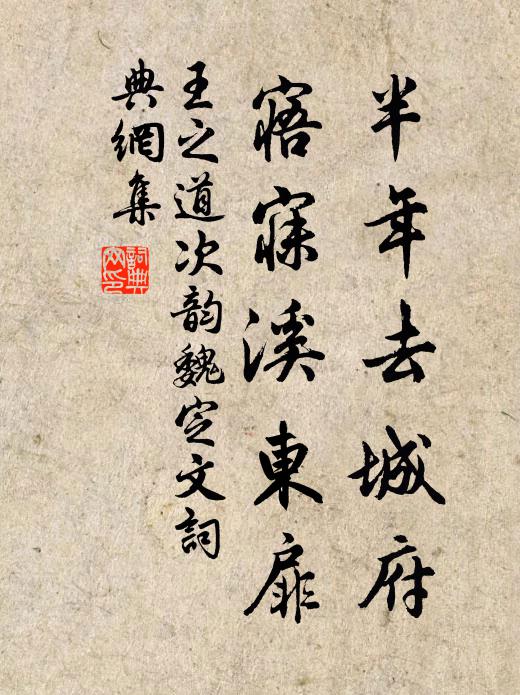 半年去城府
寤寐溪東扉
王之道次韵魏定文詞
典網集
詞典
网印